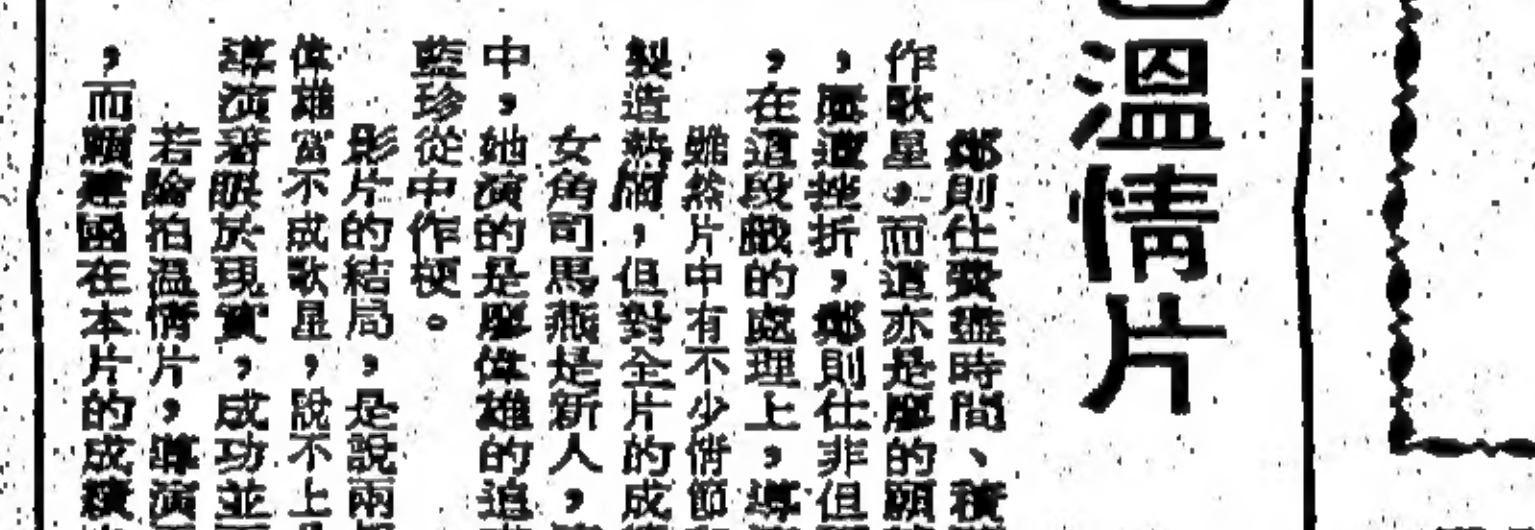 溫情片
鄭則仕費盡時間、積
作歌星,而這亦是廖的願
,屢遭挫折,鄭則仕非但
,在這段戲的處理上,導
雖然片中有不少俏節
製造熱鬧,但對全片的成
女角司馬燕是新人,
中,她演的是廖偉雄的追
藍珍從中作梗。
影片的結局,是說兩
偉雄當不成歌星,說不上
導演着眼於現實,成功並
若論拍溫情片,導演
,而賴建國在本片的成績